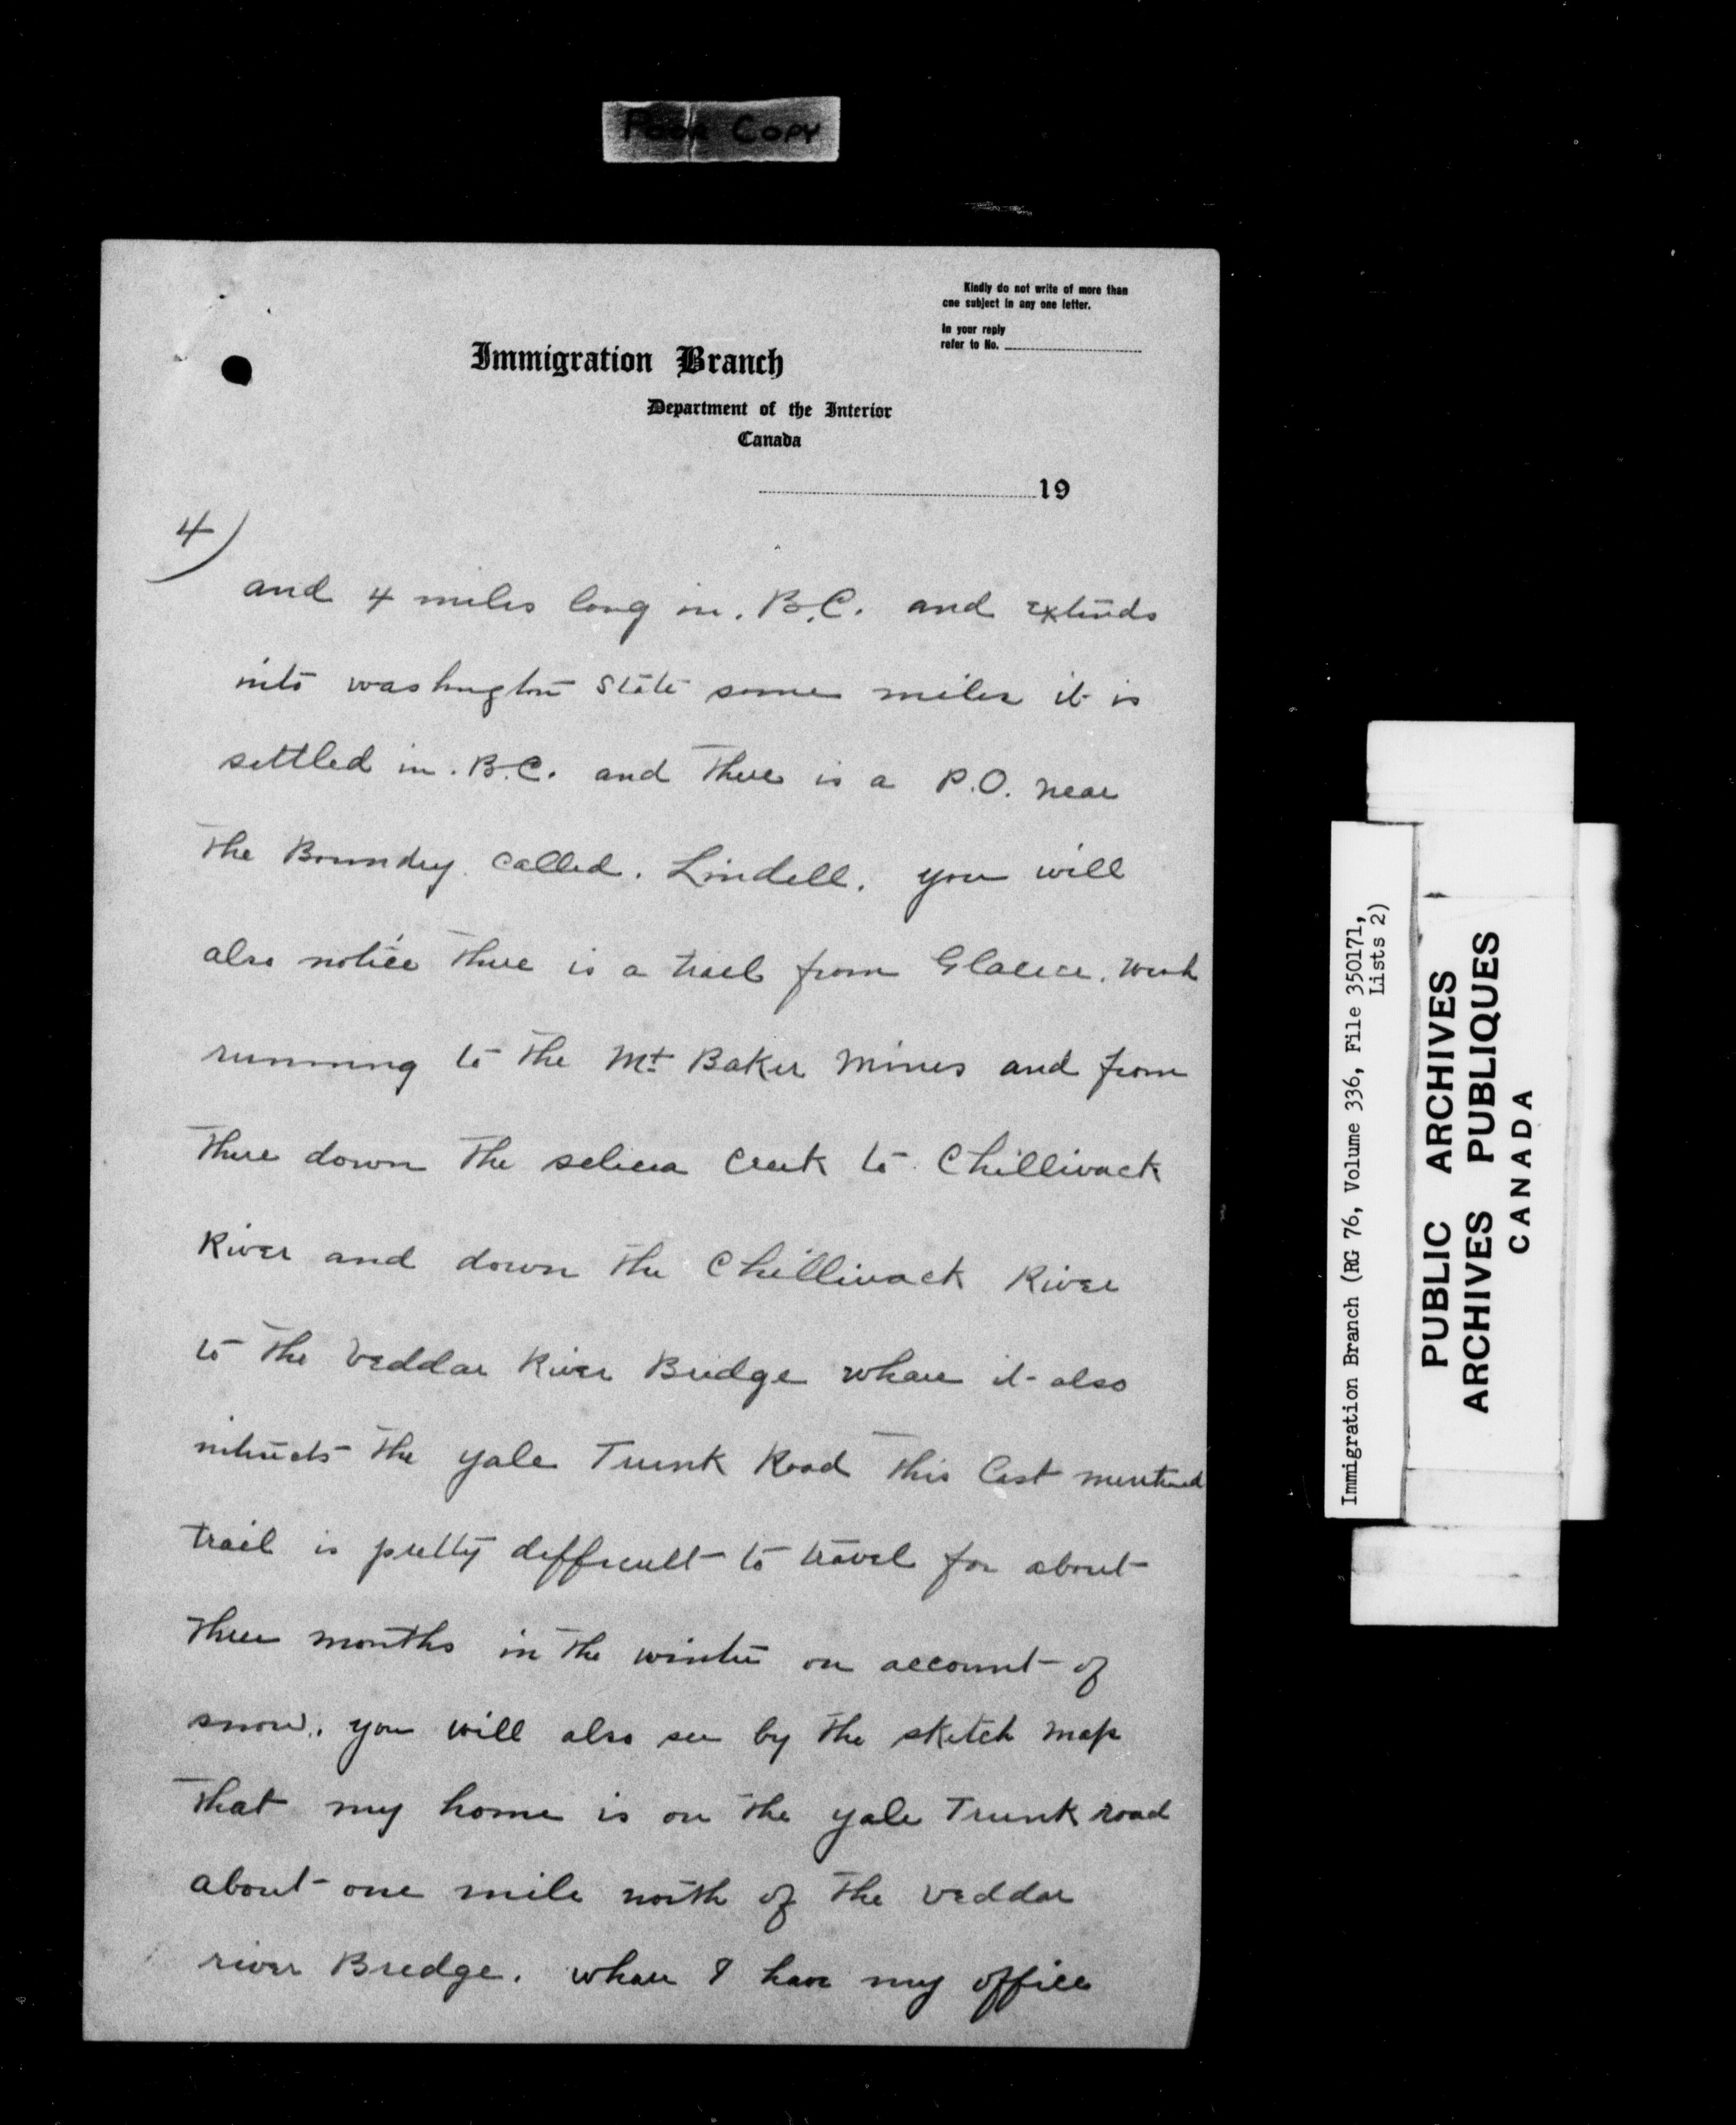 POOR COPY
Kindly do not write of more than
one subject in any one letter.
In your reply
refer to No.
Immigration Branch
Department of the Interior
Canada
19
4)
and 4 miles long in. B.C. and extends
into washington State some miles it is
settled in. B.C. and there is a P.O. near
the Boundry. called. Lindell. you will
also notice there is a trail from Glacier. Wash
running to the Mt Baker Mines and from
there down the selicia Creek to Chilliwack
River and down the Chilliwack River
to the Veddar River Bridge whare it also
intersects the yale Trunk Road this last mentioned
trail is pretty difficult to travel for about
three months in the winter on account of
snow. you will also see by the sketch map
that my home is on the yale Trunk road
about one mile north of the veddar
river Bridge. whare I have my office
Immigration Branch (RG 76, Volume 336, File 350171,
Lists 2)
PUBLIC ARCHIVES
ARCHIVES PUBLIQUES
CANADA